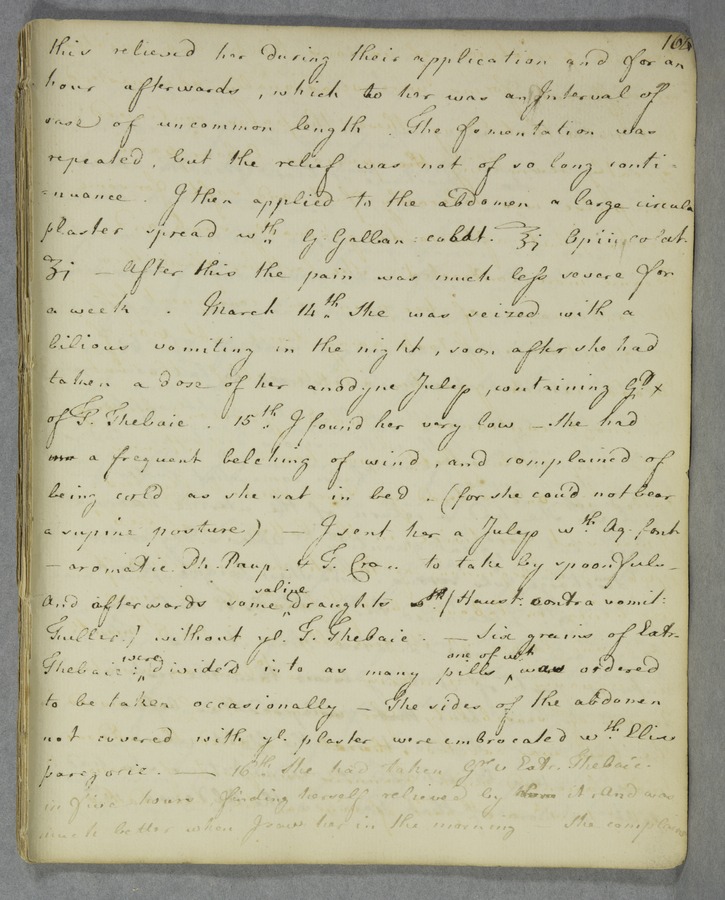 this relieved her during their application and for an
hour afterwards, which to her was an Interval of
ease of uncommon length. The fomentation was
repeated, but the relief was not of so long conti=
=nuance. I then applied to the abdomen a large circula
plaster spread wth G: Galban: colat. ʒj Opii colat.
ʒj — After this the pain was much less severe for
a week. March 14th She was seized with a
bilious vomiting in the night, soon after she had
taken a dose of her anodyne Julep, containing Gtt x
of T. Thebaic. 15th I found her very low — She had
a frequent belching of wind, and complained of
being cold as she sat in bed. (for she coud not bear
a supine posture) — I sent her a Julep wth Aq. font
— aromatic. to take by spoonfuls —
And afterwards some saline draughts (Haust: contra vomit:
Fuller.) without ye. T. Thebaic. — Six grains of Extr.
Thebaic: were divided into as many pills, one of wch was ordered
to be taken occasionally — The sides of the abdomen
not covered with ye. plaster were embrocated wth Elix
paregoric. — 16th She had taken Gr. v Extr. Thebaic.
in five hours finding herself relieved by it, And was
much better when I saw her in the morning She complain